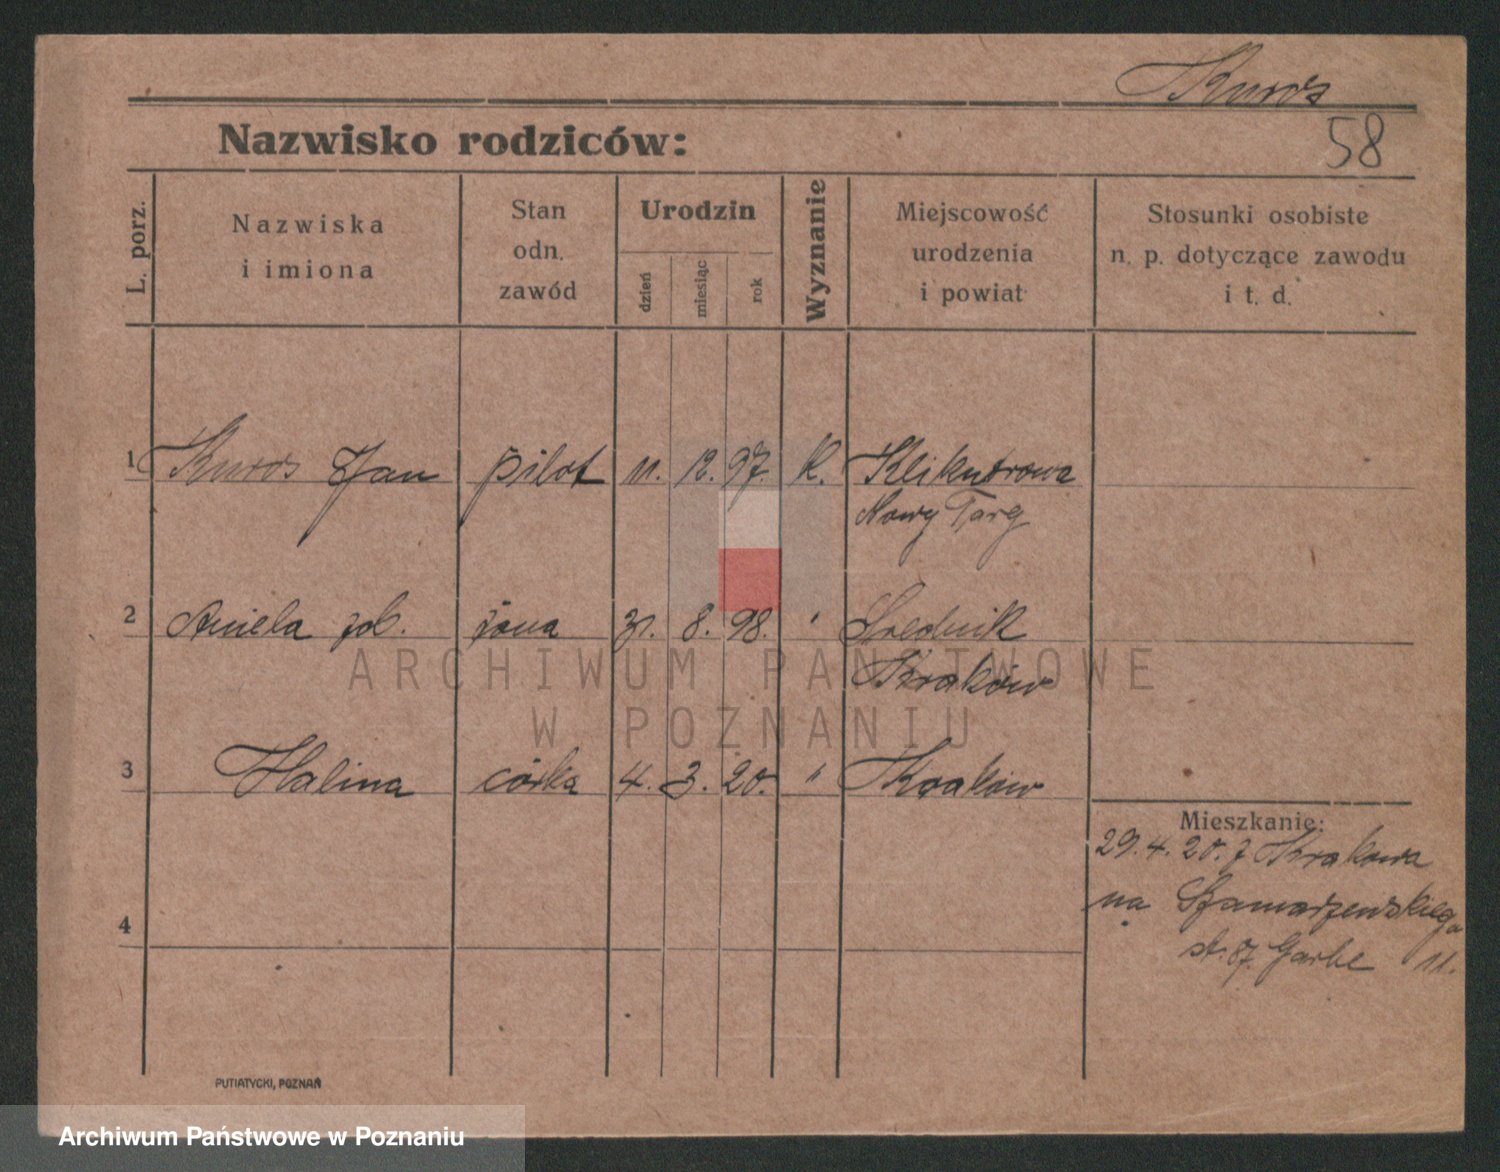 Kuros
58
Nazwisko rodziców:
L. porz.
Nazwiska
i imiona
Stan
odn.
zawód
Urodzin
dzień
miesiąc
rok
Wyznanie
Miejscowość
urodzenia
i powiat
Stosunki osobiste
n. p. dotyczące zawodu
i t. d.
1 Kuros Jan pilot 11. 12. 97. K. Klikuszowa
Nowy Targ
2 Aniela żona 31. 8. 98. "
Kraków
3 Halina córka 4. 3. 20. " Kraków
4
Mieszkanie:
29. 4. 20. z Krakowa
na Szamarzewskiego
Garbe 11.
PUTIATYCKI, POZNAŃ
ARCHIWUM PAŃSTWOWE
W POZNANIU
Archiwum Państwowe w Poznaniu